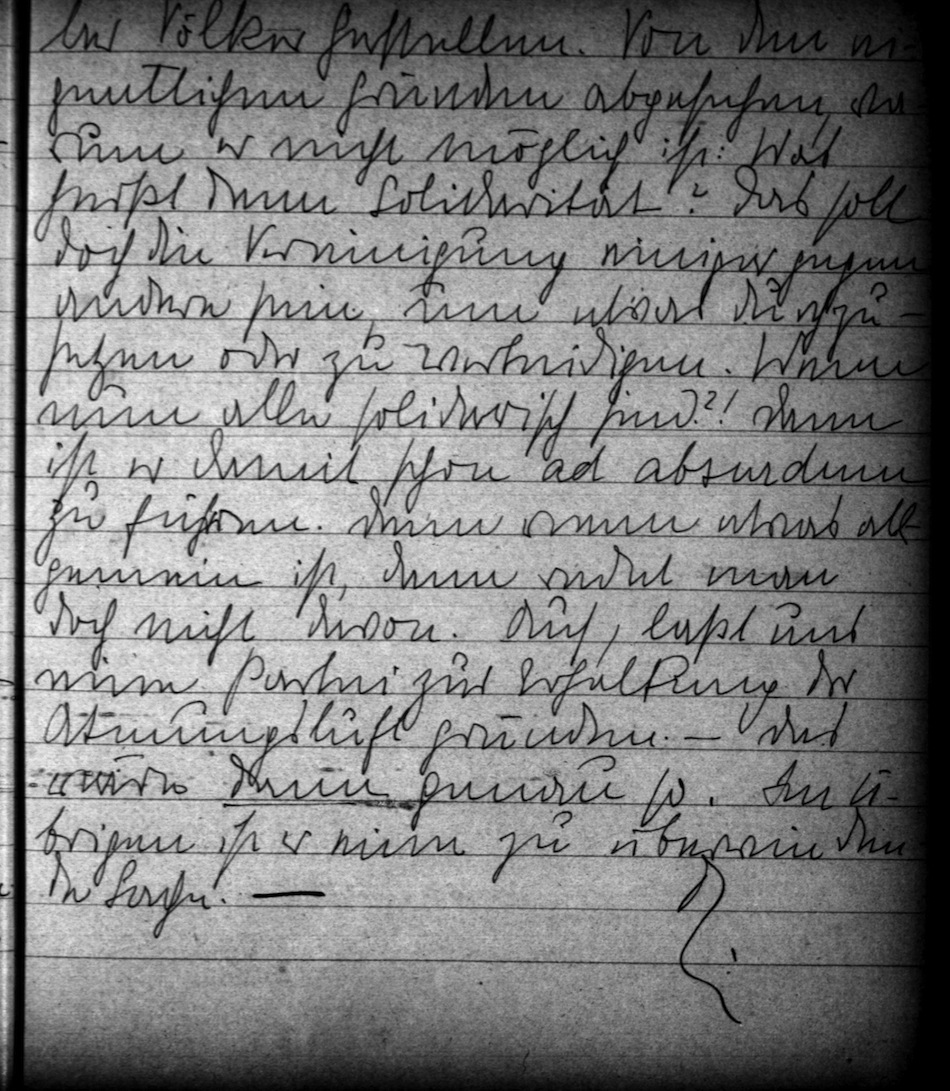 ler Völker herstellen. Von den ei-
gentlichen Gründen abgesehen, wa-
rum er nicht möglich ist: Was
heißt denn Solidarität? Das soll
doch die Vereinigung einiger gegen
andere sein, um etwas durchzu-
setzen oder zu verteidigen. Wenn
nun alle solidarisch sind?! Dann
ist er damit schon ad absurdum
zu führen. Denn wenn etwas all-
gemein ist, dann redet man
doch nicht davon. Auf, laßt uns
eine Partei zur Erhaltung der
Atmungsluft gründen. — das
wäre dann genau so. Im ü-
brigen ist er eine zu überwinden-
de Sache. —